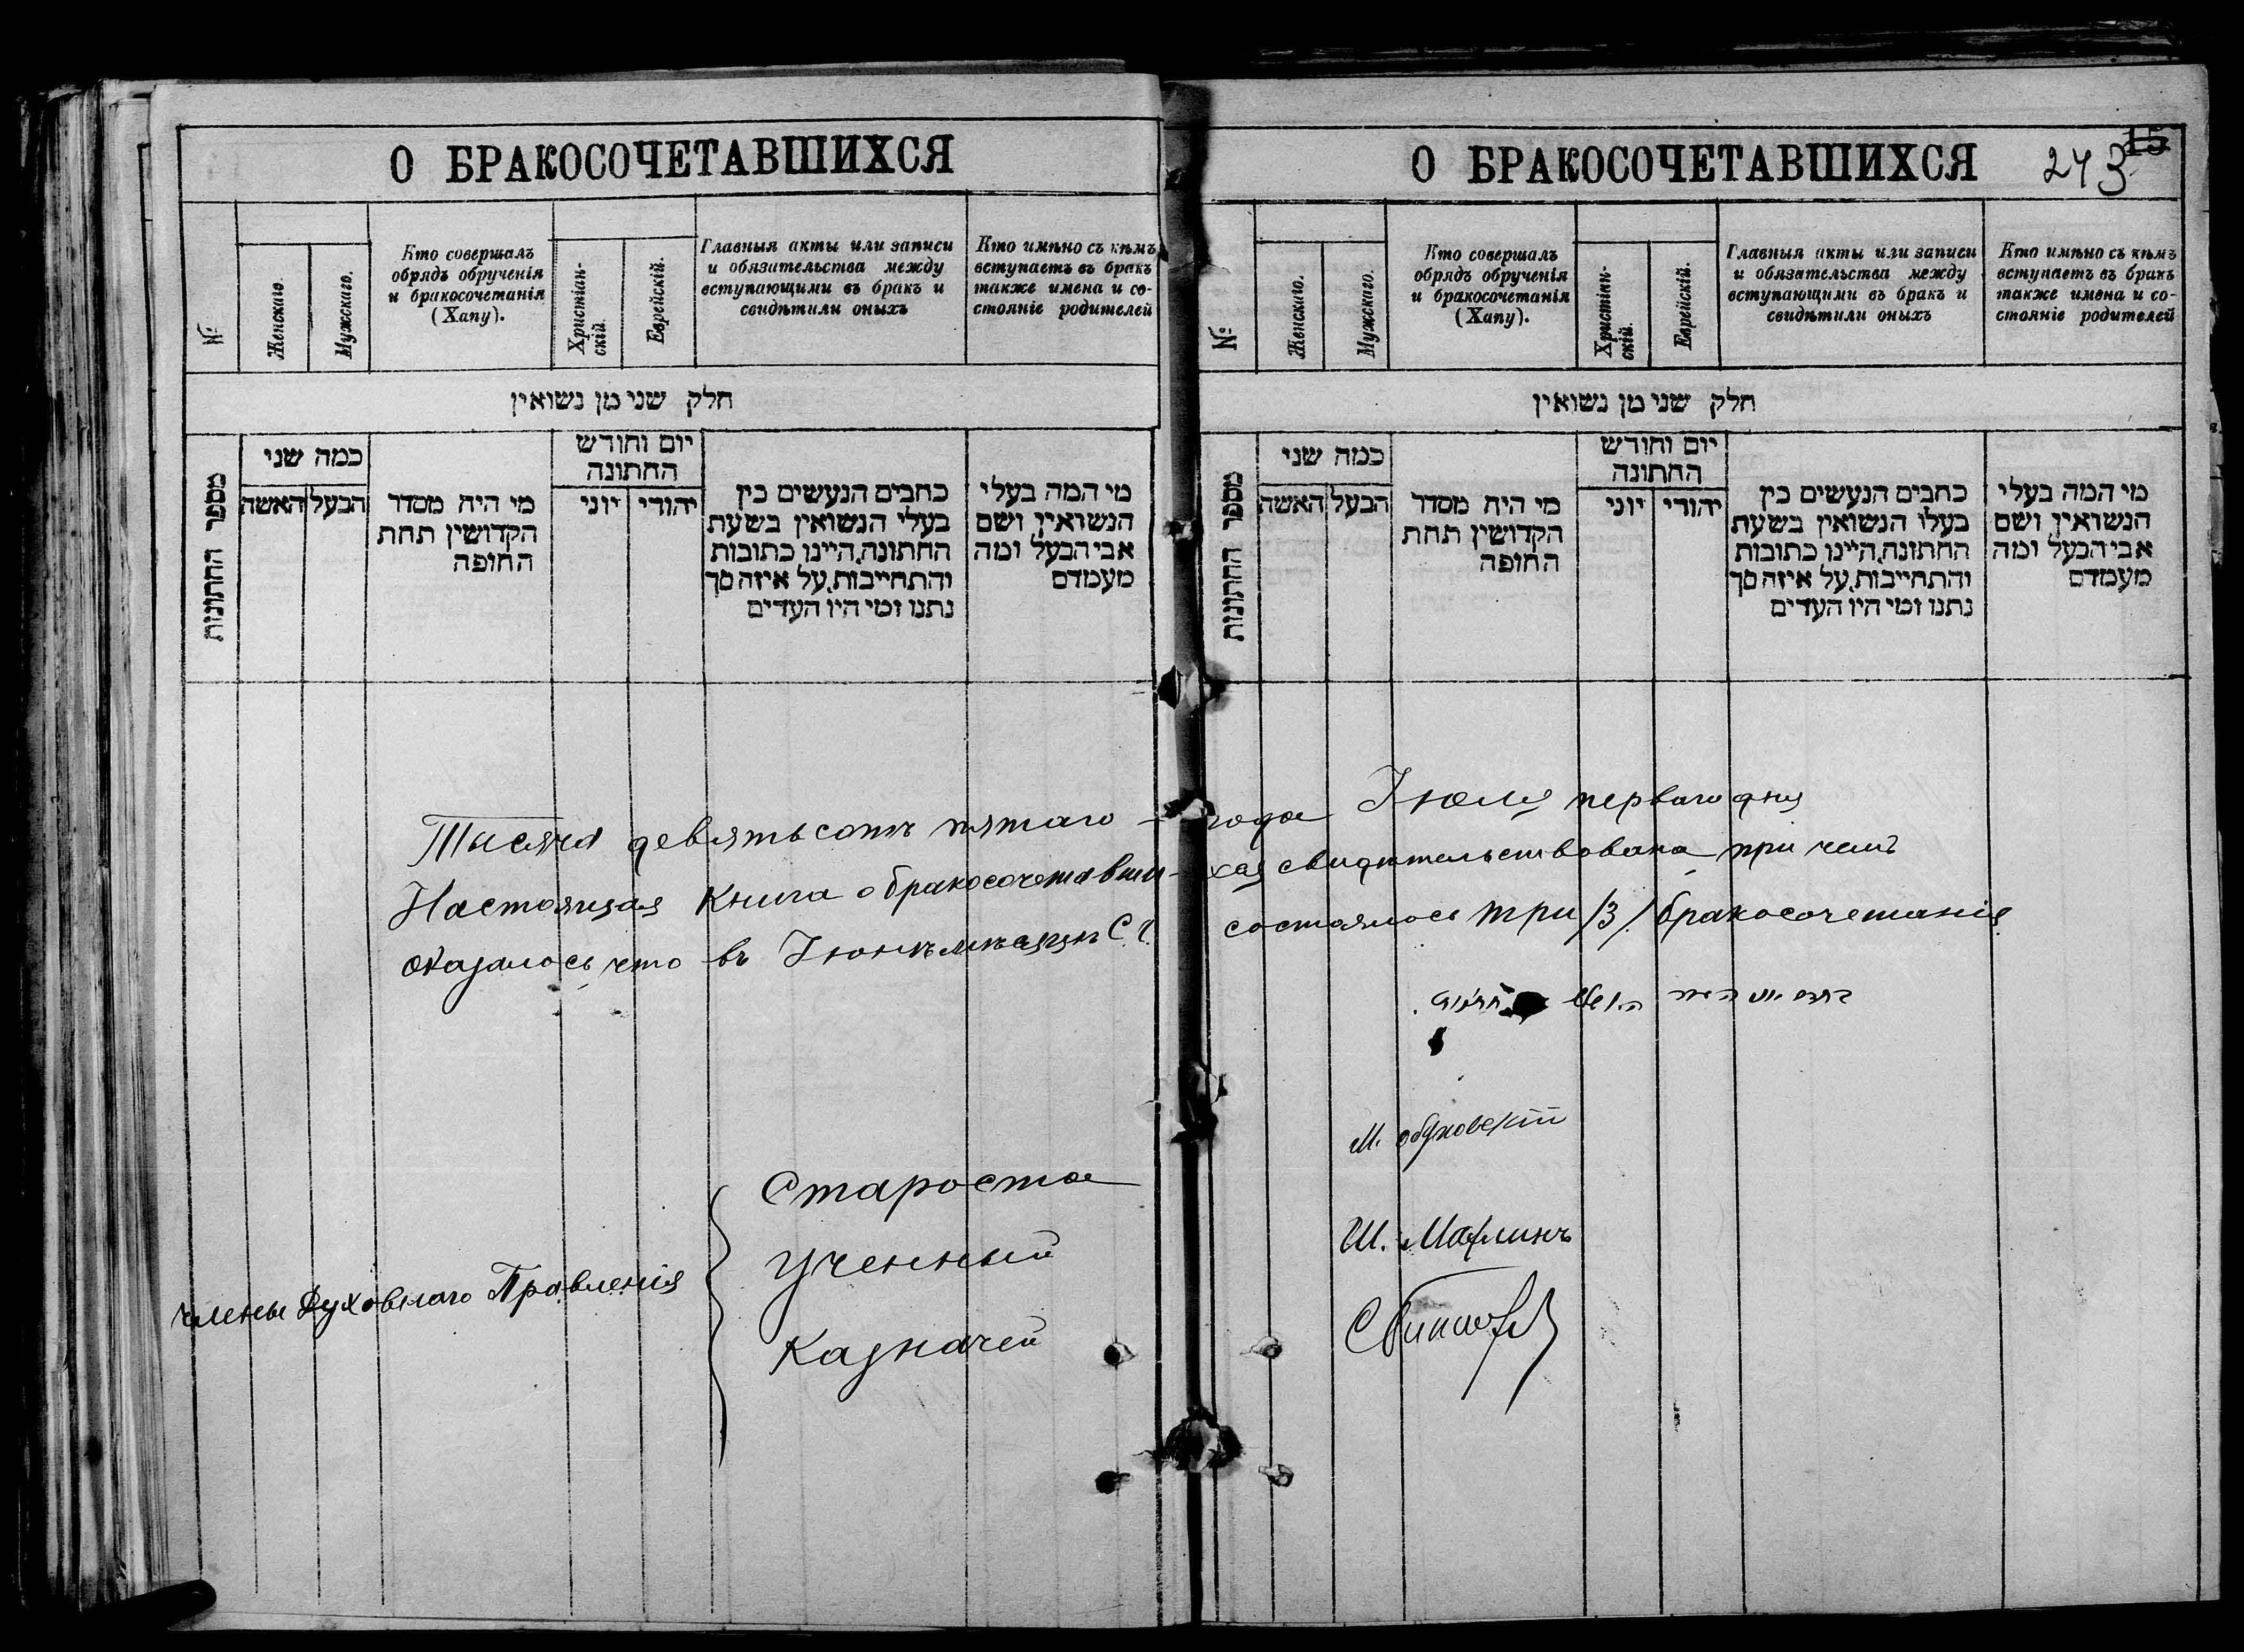 О БРАКОСОЧЕТАВШИХСЯ
№
Женскаго.
Мужскаго.
Кто совершалъ
обрядъ обрученія
и бракосочетанія
(Хапу).
Христіан-
скій.
Еврейскій.
Главныя акты или записи
и обязательства между
вступающими въ бракъ и
свидѣтили оныхъ
Кто имѣно съ кѣмъ
вступаетъ въ бракъ
также имена и со-
стояніе родителей
חלק שני מן נשואין
מספר החתונות
כמה שני
האשה
הבעל
מי היה מסדר
הקדושין תחת
החופה
יום וחודש
החתונה
יוני
יהודי
כתבים הנעשים בין
בעלי הנשואין בשעת
החתונה, היינו כתובות
והתחייבות, על איזה סך
נתנו ומי היו העדים
מי המה בעלי
הנשואין ושם
אבי הבעל ומה
מעמדם
О БРАКОСОЧЕТАВШИХСЯ
15
243
№
Женскаго.
Мужскаго.
Кто совершалъ
обрядъ обрученія
и бракосочетанія
(Хапу).
Христіан-
скій.
Еврейскій.
Главныя акты или записи
и обязательства между
вступающими въ бракъ и
свидѣтили оныхъ
Кто имѣно съ кѣмъ
вступаетъ въ бракъ
также имена и со-
стояніе родителей
חלק שני מן נשואין
מספר החתונות
כמה שני
האשה
הבעל
מי היה מסדר
הקדושין תחת
החופה
יום וחודש
החתונה
יוני
יהודי
כתבים הנעשים בין
בעלי הנשואין בשעת
החתונה, היינו כתובות
והתחייבות, על איזה סך
נתנו ומי היו העדים
מי המה בעלי
הנשואין ושם
אבי הבעל ומה
מעמדם
Тысяча девятьсотъ пятаго — года Іюля перваго дня
Настоящая Книга о бракосочетавши-хся свидѣтельствована при чемъ
оказалось, что въ Іюнѣ мѣсяцѣ С.Г. состоялось три /3/ бракосочетанія
Члены Духовнаго Правленія
Староста М. Обуховскій
Ученный Ш.
Казначей